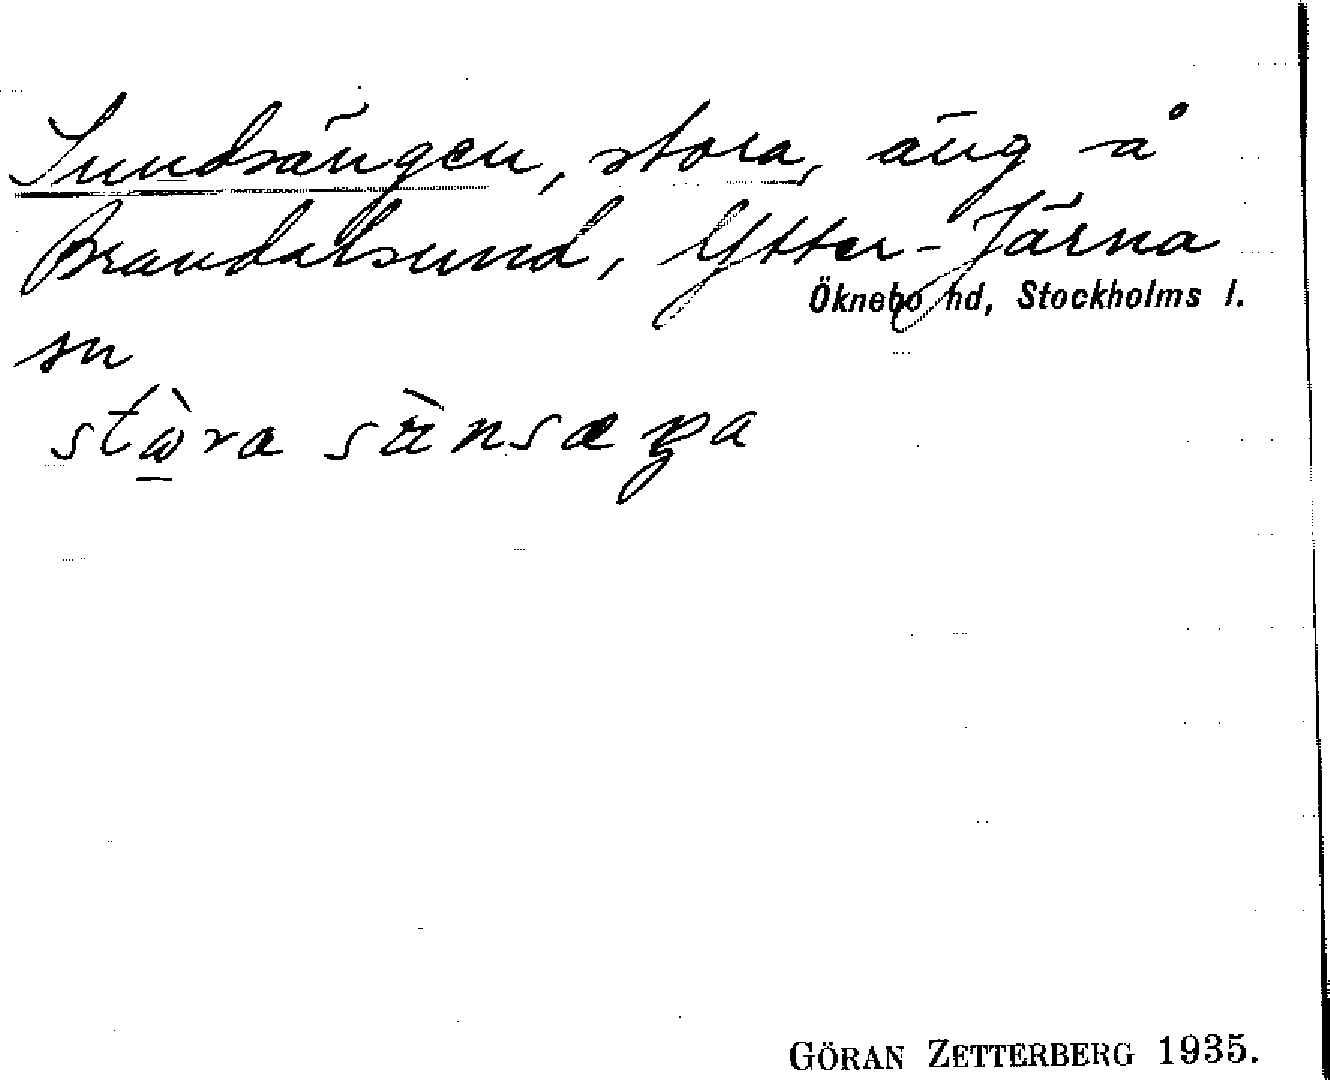 Sundsängen, stora, äng å
Brandalsund, Ytter-Järna
Öknebo hd, Stockholms l.
sn
GÖRAN ZETTERBERG 1935.